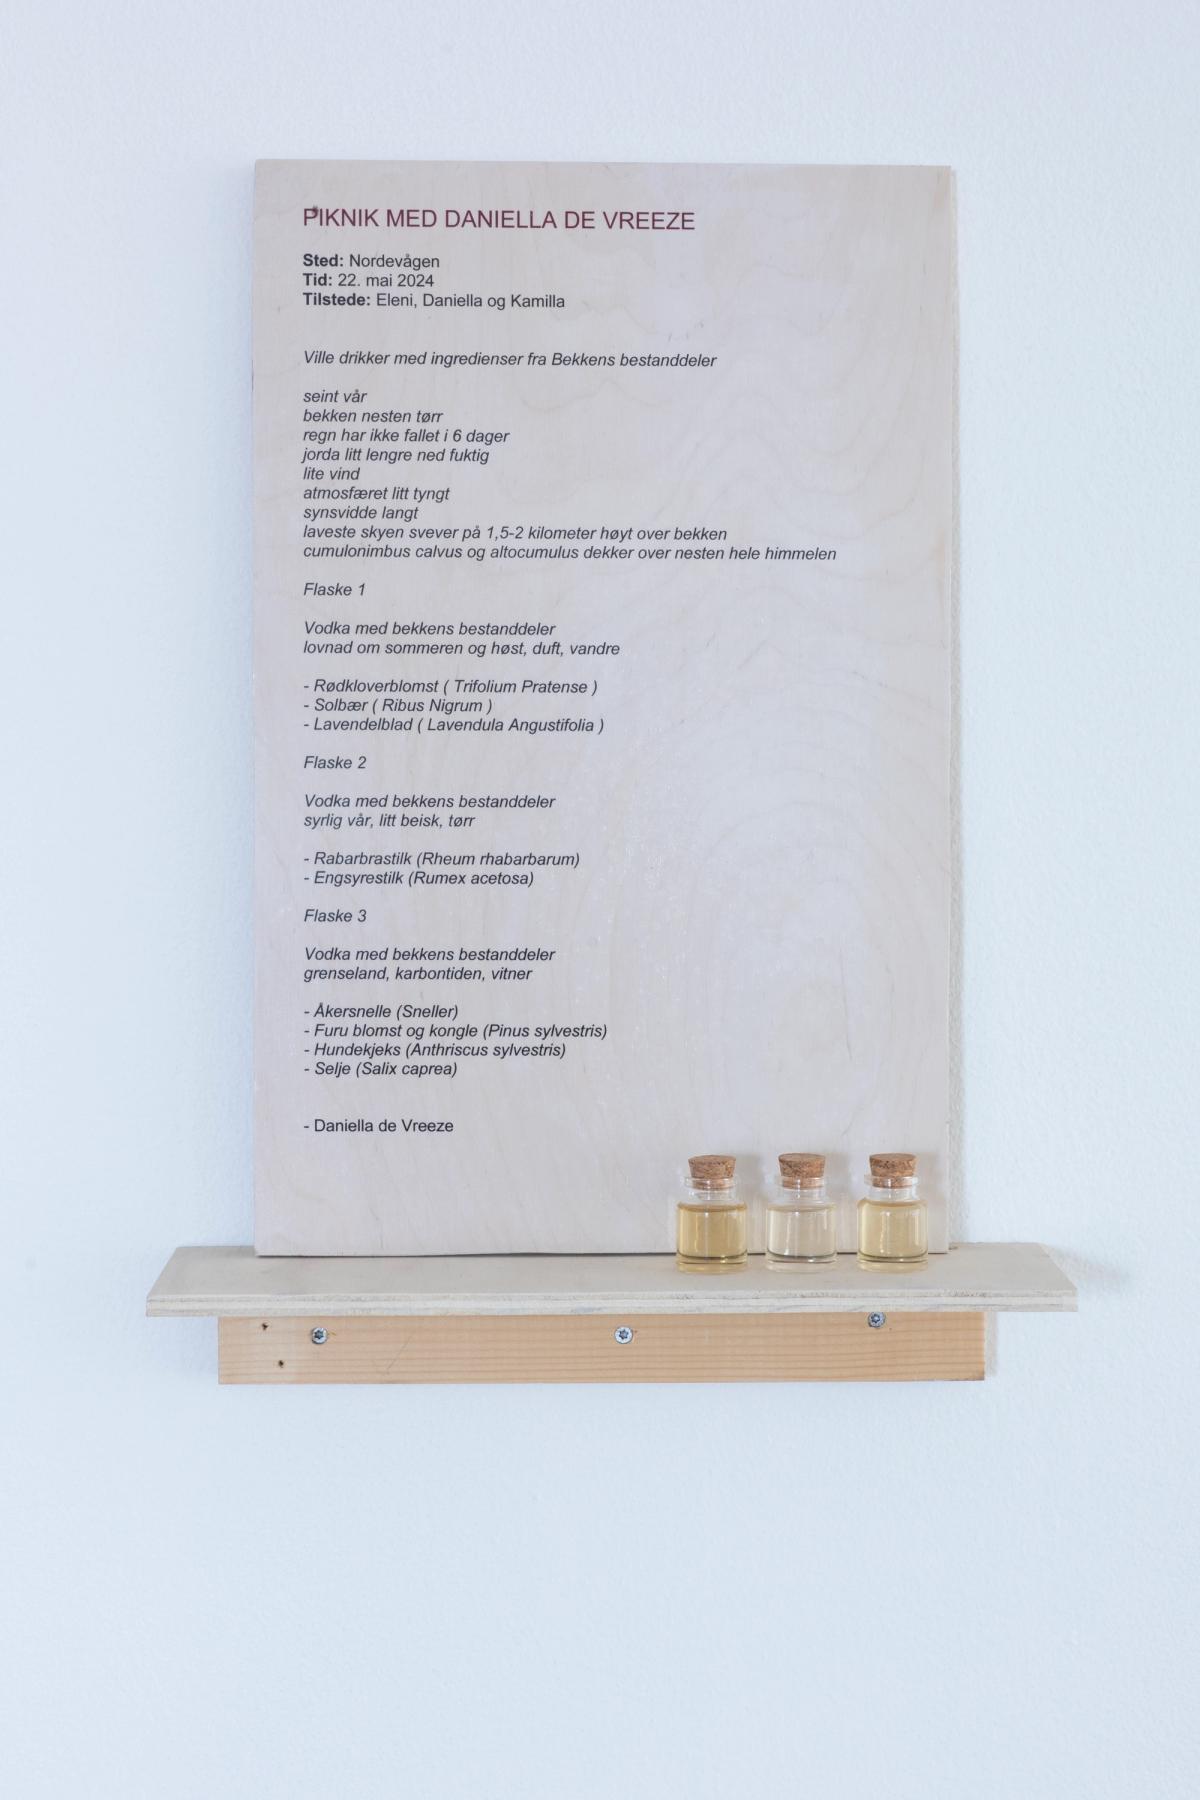 PIKNIK MED DANIELLA DE VREEZE
Sted: Nordevågen
Tid: 22. mai 2024
Tilstede: Eleni, Daniella og Kamilla
Ville drikker med ingredienser fra Bekkens bestanddeler
seint vår
bekken nesten tørr
regn har ikke fallet i 6 dager
jorda litt lengre ned fuktig
lite vind
atmosfæret litt tyngt
synsvidde langt
laveste skyen svever på 1,5-2 kilometer høyt over bekken
cumulonimbus calvus og altocumulus dekker over nesten hele himmelen
Flaske 1
Vodka med bekkens bestanddeler
lovnad om sommeren og høst, duft, vandre
- Rødkloverblomst ( Trifolium Pratense )
- Solbær ( Ribus Nigrum )
- Lavendelblad ( Lavendula Angustifolia )
Flaske 2
Vodka med bekkens bestanddeler
syrlig vår, litt beisk, tørr
- Rabarbrastilk (Rheum rhabarbarum)
- Engsyrestilk (Rumex acetosa)
Flaske 3
Vodka med bekkens bestanddeler
grenseland, karbontiden, vitner
- Åkersnelle (Sneller)
- Furu blomst og kongle (Pinus sylvestris)
- Hundekjeks (Anthriscus sylvestris)
- Selje (Salix caprea)
- Daniella de Vreeze